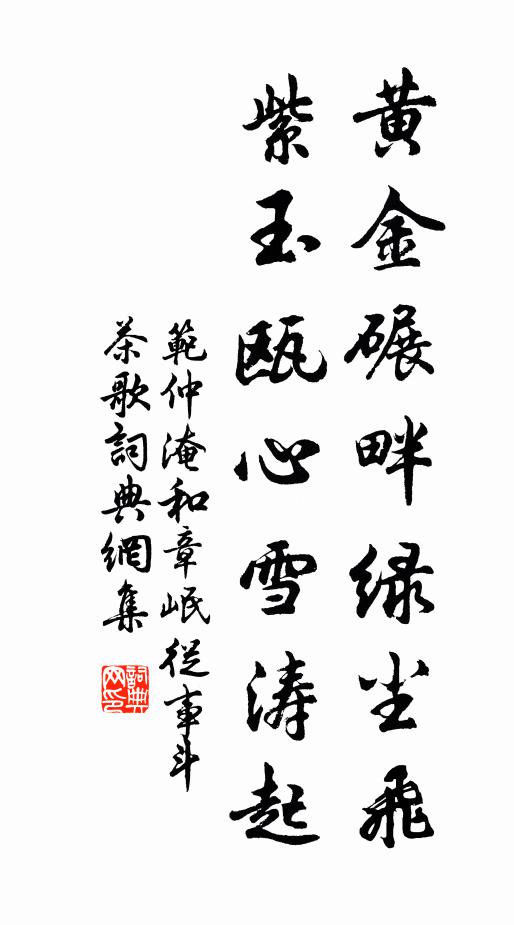 黄金碾畔绿尘飛
紫玉瓯心雪涛起
範仲淹和章岷從事斗
茶歌詞典網集
詞典
网印